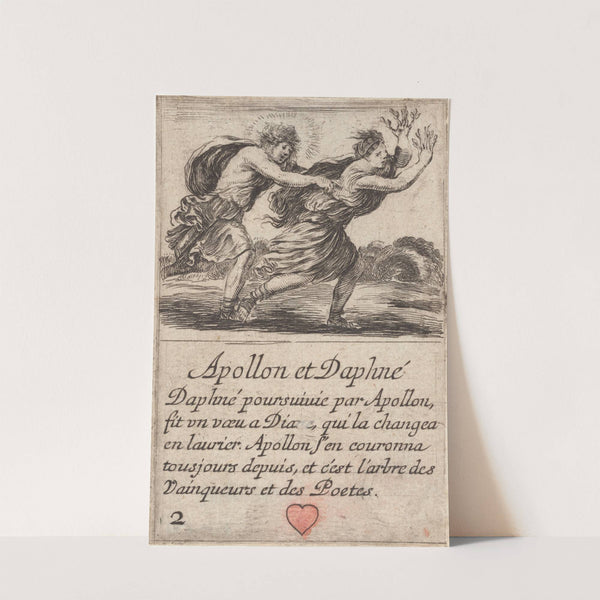 Apollon et Daphné
Daphné poursuivie par Apollon,
fit vn vœu a Dia e, qui la changea
en laurier. Apollon s'en couronna
tousjours depuis, et c'est l'arbre des
Vainqueurs et des Poetes.
2